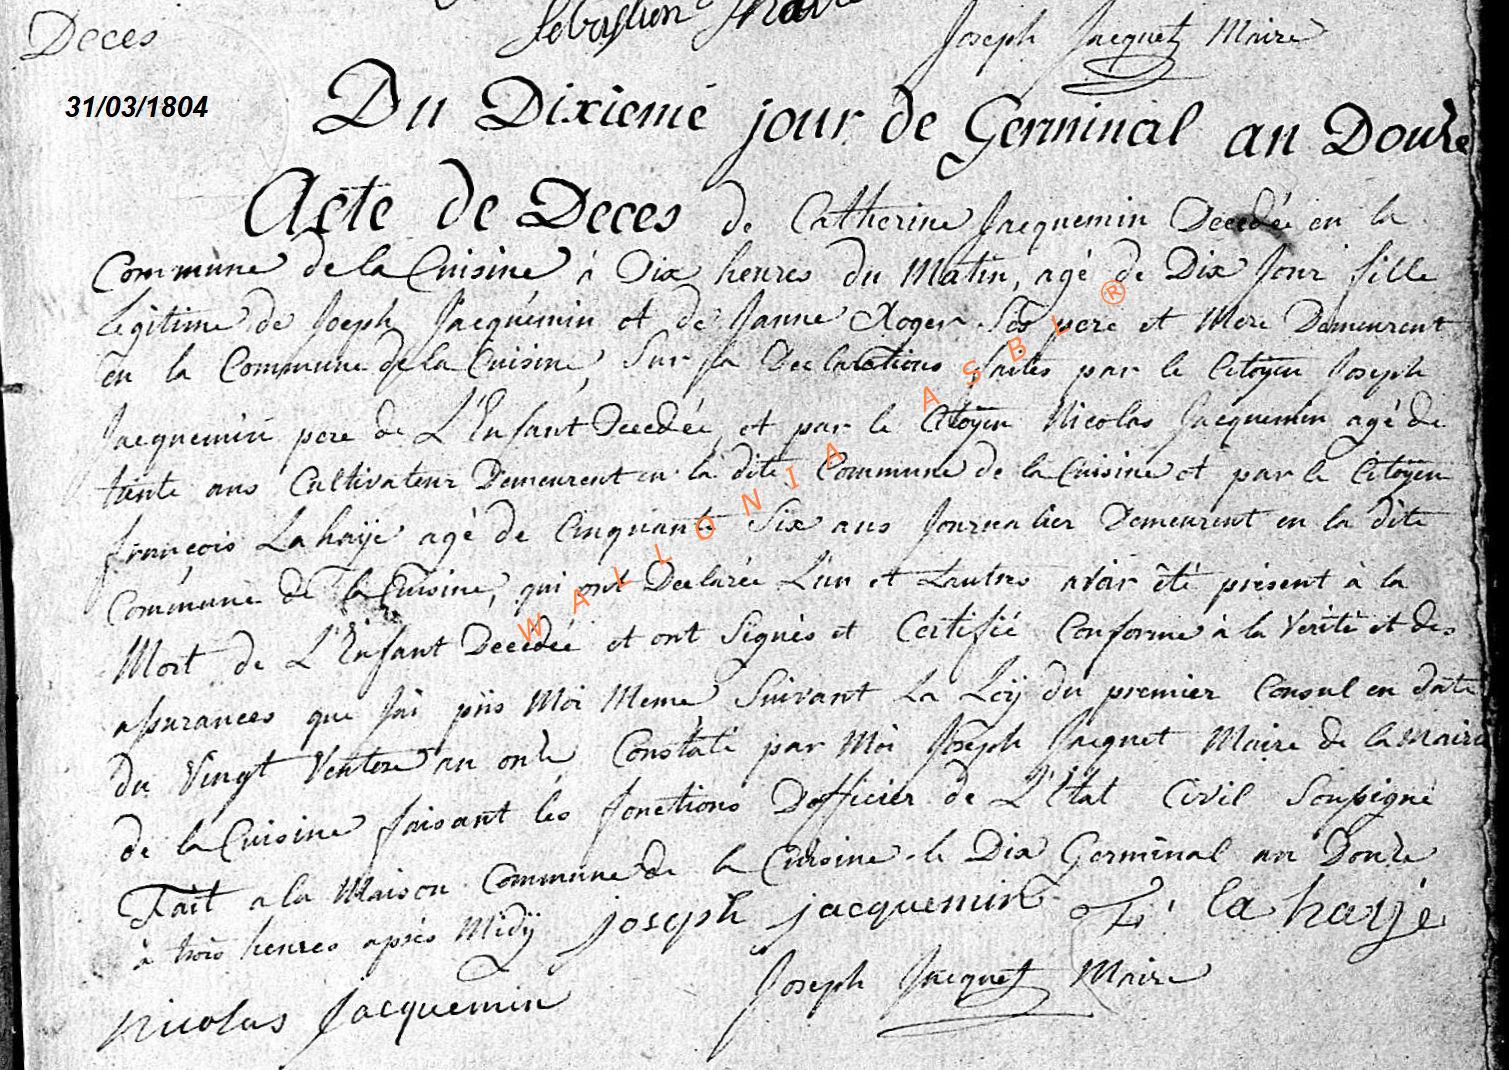 Deces
Joseph Jacquet Maire
31/03/1804
Du Dixiemé jour de Germinal an Douze
Acte de Deces de Catherine Jacquemin Decedée en la
Commune de la Cuisine à Dix heures du Matin, agé de Dix Jour fille
Legitime de Joseph Jacquemin et de Janne Roger Ses pere et Mere Demeurent
en la Commune de la Cuisine, Sur la Declarations faites par le Citoyen Joseph
Jacquemin pere de L'Enfant Decedée, et par le Citoyen Nicolas Jacquemin agé de
trente ans Cultivateur Demeurent en la dite Commune de la Cuisine et par le Citoyen
françois Lahaÿe agé de Cinquante Six ans Journalier Demeurent en la dite
Commune de la Cuisine, qui ont Declarée L'un et Lautres avoir été présent à la
Mort de L'Enfant Decedée et ont Signés et Certifié Conforme à la Verité et des
assurances que jai pris Moi Meme Suivant La Loÿ du premier Consul en date
du Vingt Ventose an onze Constaté par Moi Joseph Jacquet Maire de la Mairie
de la Cuisine faisant les fonctions D'officier de L'Etat Civil Soussigné
Fait a la Maison Commune de la Cuisine le Dix Germinal an Douze
à trois heures après Midÿ joseph jacquemin la haÿe
nicolas Jacquemin Joseph Jacquet Maire
WALLONIA ASBL ®